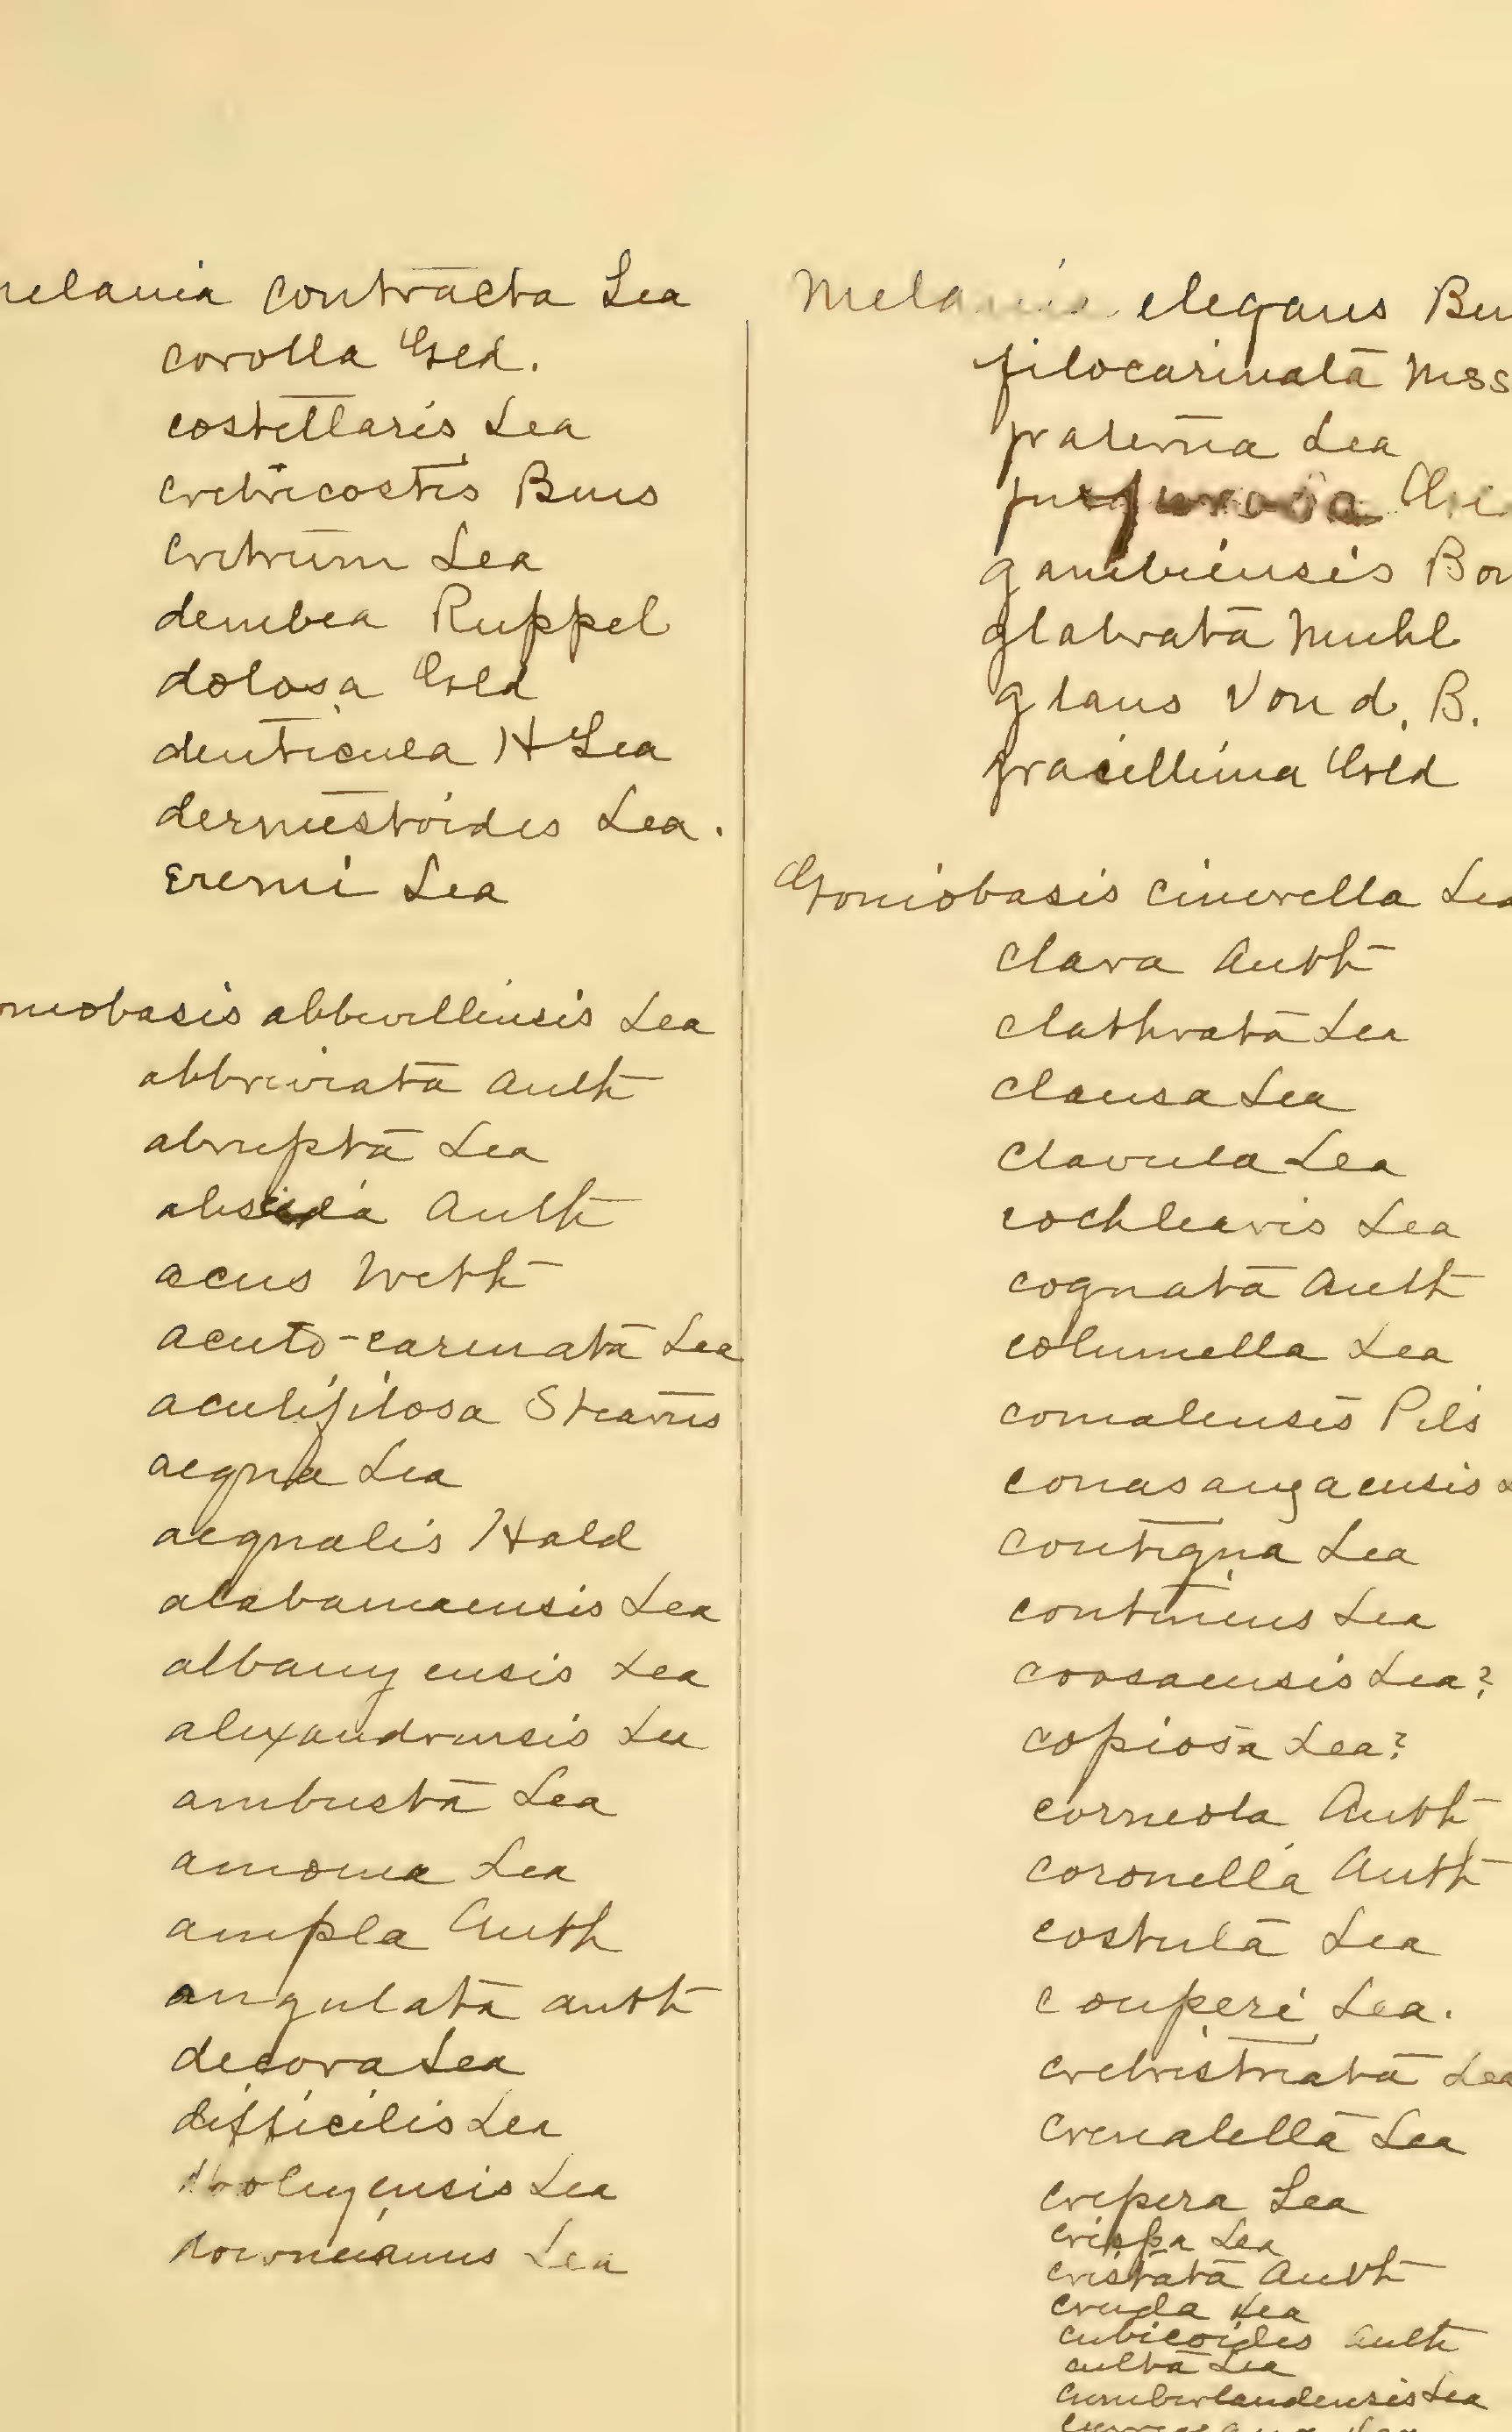 melania contracta Lea
corolla Gld.
costellaris Lea
crebricostis Buis
cribrum Lea
dembea Ruppel
dolosa Gld
denticula H Lea
dermestoides Lea.
Eremi Lea
oniobasis abbevillensis Lea
abbreviata Anth
abrupta Lea
abscida Anth
acus Weth
acuto-carinata Lea
acutifilosa Stearns
aequa Lea
aequalis Hald
alabamaensis Lea
albanyensis Lea
alexandrensis Le
ambusta Lea
amoena Lea
ampla Anth
angulata anth
decora Lea
difficilis Lea
dooleyensis Lea
downeianus Lea
elegans Bu
filocarinata Mss
fraterna Lea
gambiensis Bor
glabrata Muhl
glans Von d. B.
gracillima Gld
Goniobasis cinerella Lea
clara Anth
clathrata Lea
clausa Lea
clavula Lea
cochlearis Lea
cognata Anth
columella Lea
comalensis Pils
conasaugaensis
contigua Lea
continens Lea
coosaensis Lea?
copiosa Lea?
corneola Anth
coronella Anth
costula Lea
couperi Lea.
crebristriata Lea
crenatella Lea
crepera Lea
crispa Lea
cristata Anth
cruda Lea
cubicoides Anth
culta Lea
cumberlandensis Lea